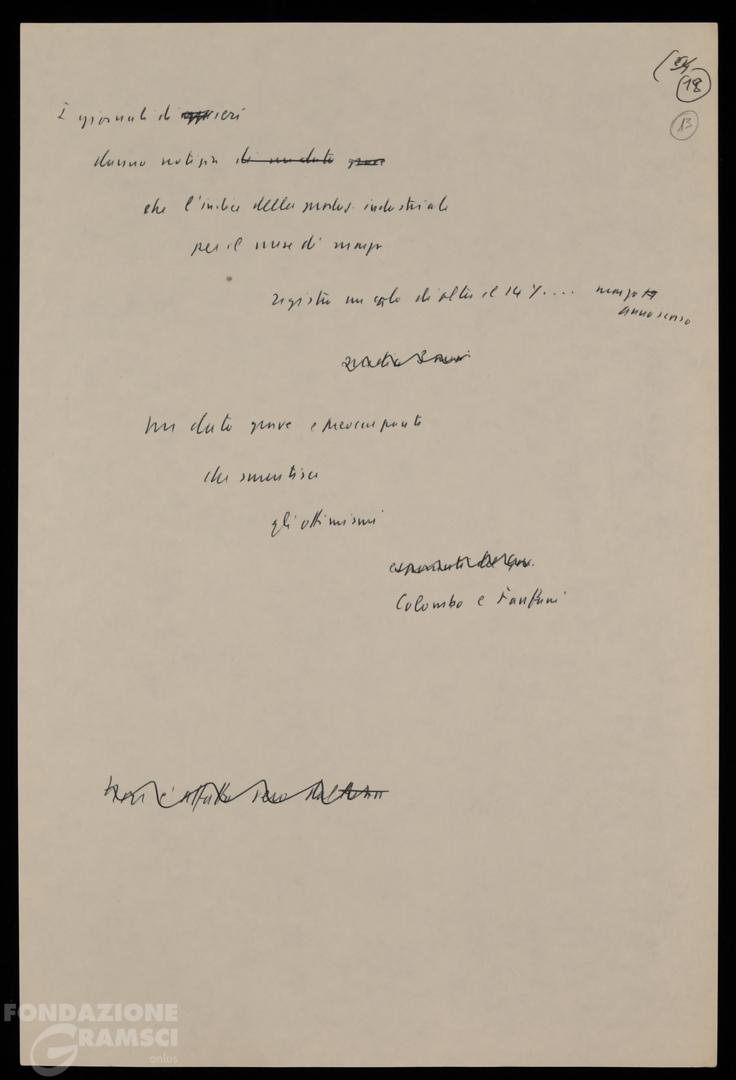 18
13
I giornali di ieri
danno notizia di un dato grave
che l'indice della produz. industriale
per il mese di marzo
registra un calo di oltre il 14 %.... marzo
anno scorso
un dato grave e preoccupante
che smentisce
gli ottimismi
Colombo e Fanfani
FONDAZIONE
GRAMSCI
onlus